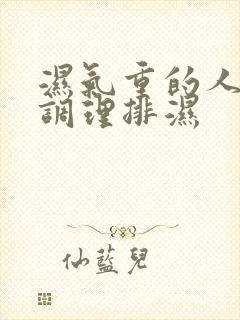 濕氣重的人
調理排濕
仙藍兒